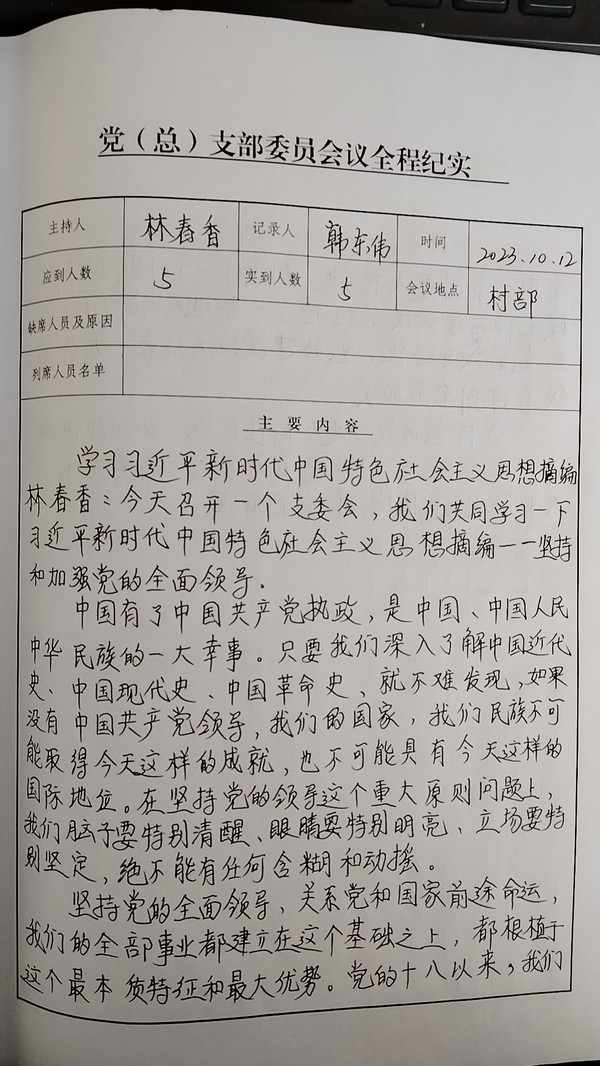 党（总）支部委员会议全程纪实
主持人 林春香 记录人 韩东伟 时间 2023.10.12
应到人数 5 实到人数 5 会议地点 村部
缺席人员及原因
列席人员名单
主要内容
学习习近平新时代中国特色社会主义思想摘编
林春香：今天召开一个支委会，我们共同学习一下
习近平新时代中国特色社会主义思想摘编——坚持
和加强党的全面领导.
中国有了中国共产党执政，是中国、中国人民
中华民族的一大幸事。只要我们深入了解中国近代
史、中国现代史、中国革命史、就不难发现，如果
没有中国共产党领导，我们的国家，我们民族不可
能取得今天这样的成就，也不可能具有今天这样的
国际地位。在坚持党的领导这个重大原则问题上，
我们脑子要特别清醒、眼睛要特别明亮、立场要特
别坚定，绝不能有任何含糊和动摇。
坚持党的全面领导、关系党和国家前途命运，
我们的全部事业都建立在这个基础之上，都根植于
这个最本质特征和最大优势。党的十八以来，我们